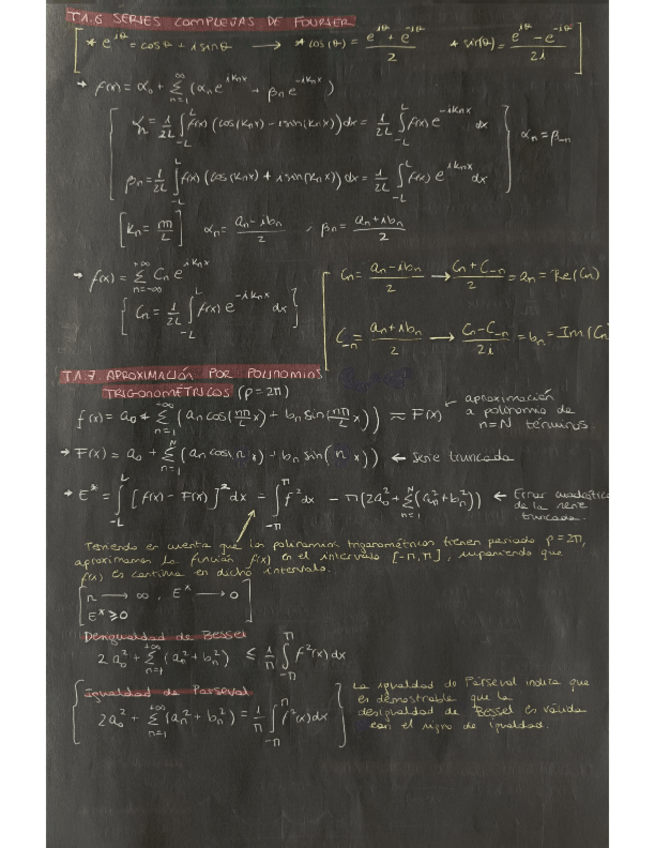 T.1.6 SERIES COMPLEJAS DE FOURIER
* e^{iθ} = cosθ + i sinθ → * cos(θ) = (e^{iθ} + e^{-iθ})/2 * sin(θ) = (e^{iθ} - e^{-iθ})/2i
→ f(x) = α₀ + Σ_{n=1}^{∞} (αₙ e^{ikₙx} + βₙ e^{-ikₙx})
αₙ = 1/2L ∫_{-L}^{L} f(x) (cos(kₙx) - i sin(kₙx)) dx = 1/2L ∫_{-L}^{L} f(x) e^{-ikₙx} dx
αₙ = β₋ₙ
βₙ = 1/2L ∫_{-L}^{L} f(x) (cos(kₙx) + i sin(kₙx)) dx = 1/2L ∫_{-L}^{L} f(x) e^{ikₙx} dx
[kₙ = πn/L] αₙ = (aₙ - ibₙ)/2 , βₙ = (aₙ + ibₙ)/2
→ f(x) = Σ_{n=-∞}^{+∞} Cₙ e^{ikₙx}
{ Cₙ = 1/2L ∫_{-L}^{L} f(x) e^{-ikₙx} dx }
Cₙ = (aₙ - ibₙ)/2 → (Cₙ + C₋ₙ)/2 = aₙ = Re(Cₙ)
C₋ₙ = (aₙ + ibₙ)/2 → (Cₙ - C₋ₙ)/2i = bₙ = Im(Cₙ
T.1.7 APROXIMACIÓN POR POLINOMIOS
TRIGONOMÉTRICOS (P = 2π)
f(x) = a₀ + Σ_{n=1}^{+∞} (aₙ cos(πn/L x) + bₙ sin(πn/L x)) ≈ F(x)
← aproximación
a polinomio de
n=N términos.
→ F(x) = a₀ + Σ_{n=1}^{N} (aₙ cos(n x) + bₙ sin(n x)) ← Serie truncada
→ E* = ∫_{-L}^{L} [f(x) - F(x)]² dx = ∫_{-π}^{π} f² dx - π(2a₀² + Σ_{n=1}^{N} (aₙ² + bₙ²)) ← Error cuadrático
de la serie
truncada.
Teniendo en cuenta que los polinomios trigonométricos tienen periodo P = 2π,
aproximamos la función f(x) en el intervalo [-π, π], suponiendo que
f(x) es continua en dicho intervalo.
n → ∞, E* → 0
E* ≥ 0
Desigualdad de Bessel
2a₀² + Σ_{n=1}^{+∞} (aₙ² + bₙ²) ≤ 1/π ∫_{-π}^{π} f²(x) dx
Igualdad de Parseval
2a₀² + Σ_{n=1}^{+∞} (aₙ² + bₙ²) = 1/π ∫_{-π}^{π} f²(x) dx
La igualdad de Parseval indica que
es demostrable que la
desigualdad de Bessel es válida
con el signo de igualdad.